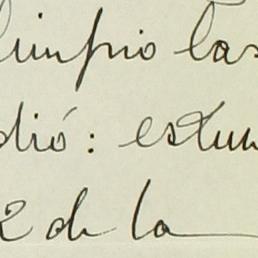 limpio las
dió: estuv
2 de la